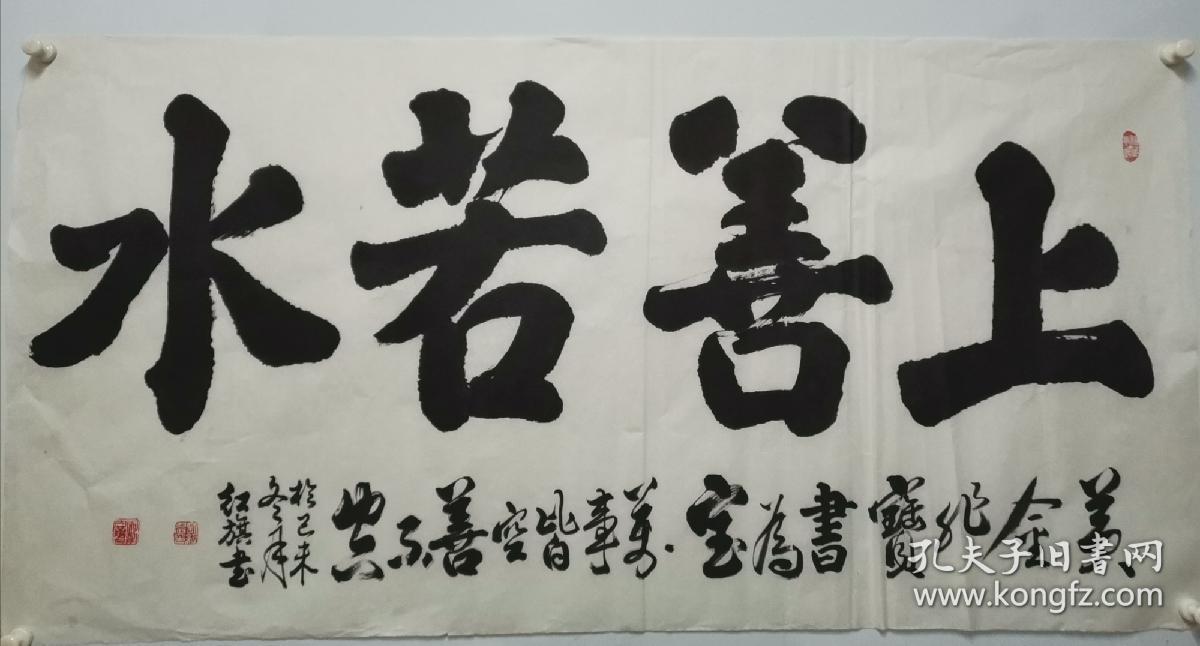 上善若水
黄金非寶書為宝萬事皆空善不空
於己未
冬月
红旗书
孔夫子旧書网
www.kongfz.com